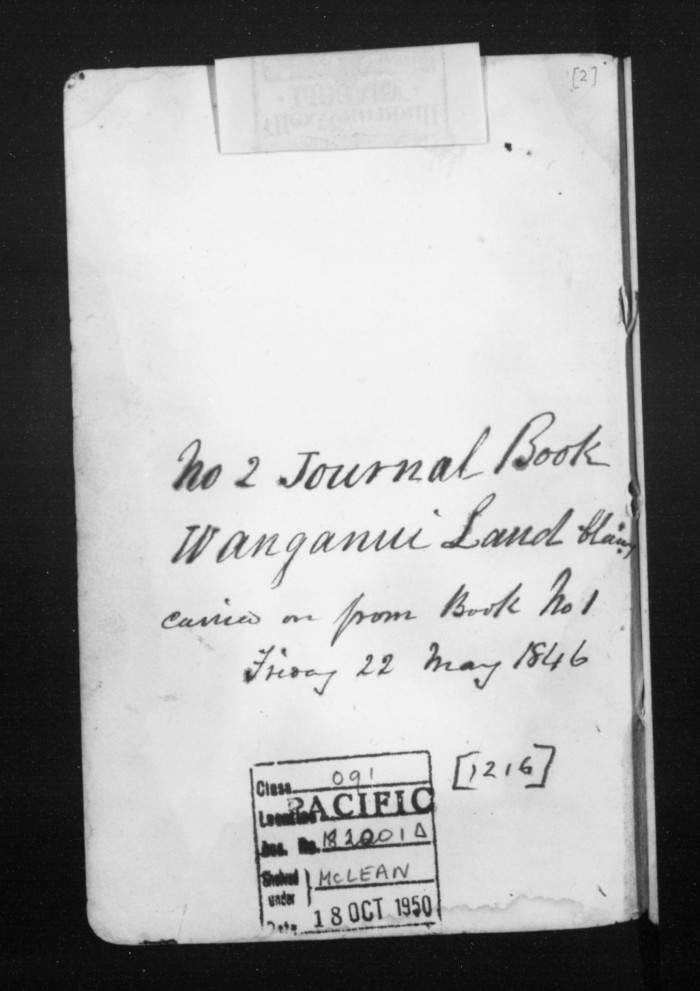 [2]
No 2 Journal Book
Wanganui Land Claims
carried on from Book No 1
Friday 22 May 1846
[1216]
Class 091
PACIFIC
Acc. No.
Shelved under } McLEAN
Date 18 OCT 1950